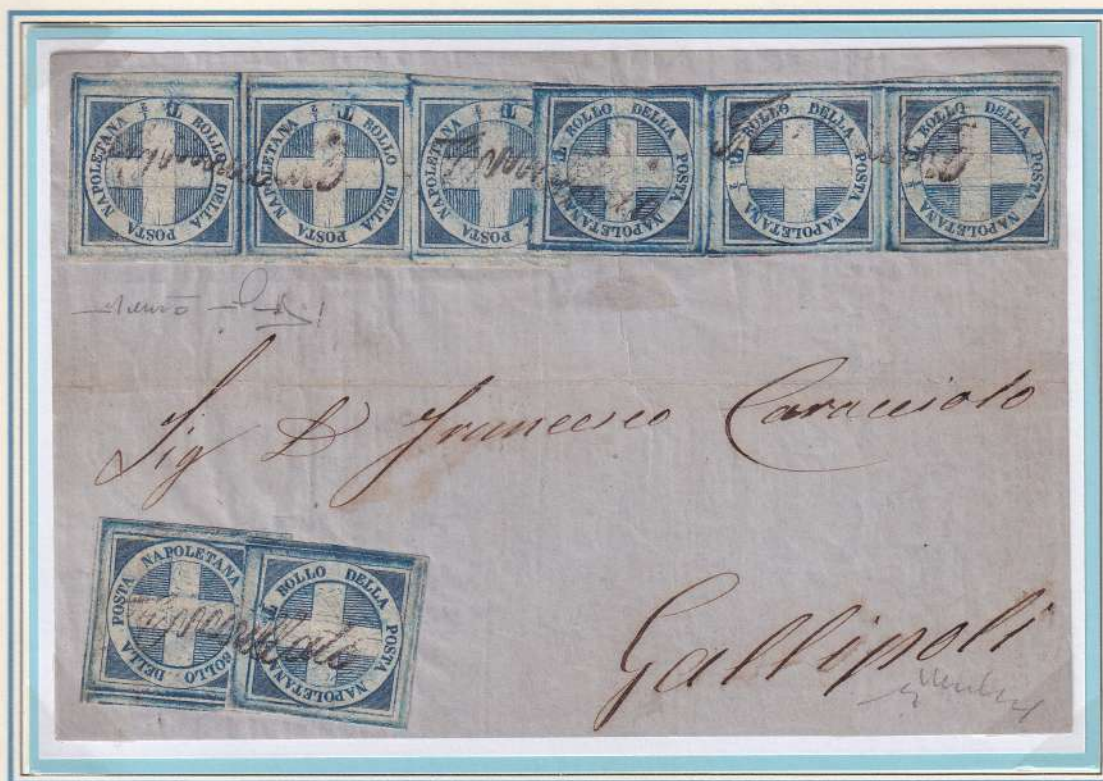 BOLLO DELLA POSTA NAPOLETANA ½ T
BOLLO DELLA POSTA NAPOLETANA ½ T
BOLLO DELLA POSTA NAPOLETANA ½ T
BOLLO DELLA POSTA NAPOLETANA
BOLLO DELLA POSTA NAPOLETANA ½ T
BOLLO DELLA POSTA NAPOLETANA ½ T
Sig D Francesco Caracciolo
BOLLO DELLA POSTA NAPOLETANA
BOLLO DELLA POSTA NAPOLETANA
Annullato
Gallipoli